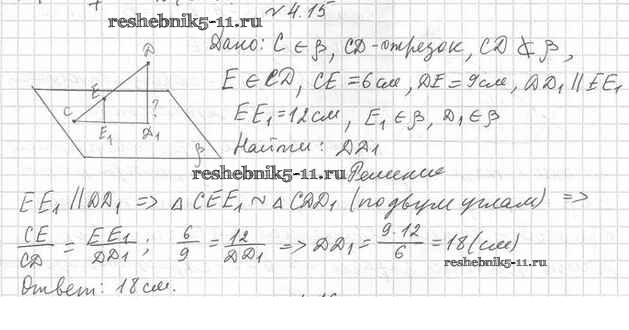 №4.15
reshebnik5-11.ru
Дано: C ∈ β, CD-отрезок, CD ⊄ β,
E ∈ CD, CE = 6 см, DE = 9 см, DD₁ ∥ EE₁
EE₁ = 12 см, E₁ ∈ β, D₁ ∈ β
Найти: DD₁
D
E
C
?
E₁ D₁
β
reshebnik5-11.ru
Решение
EE₁ ∥ DD₁ => △ CEE₁ ~ △ CDD₁ (по двум углам) =>
CE/CD = EE₁/DD₁; 6/9 = 12/DD₁ => DD₁ = 9·12/6 = 18 (см)
reshebnik5-11.ru
Ответ: 18 см.